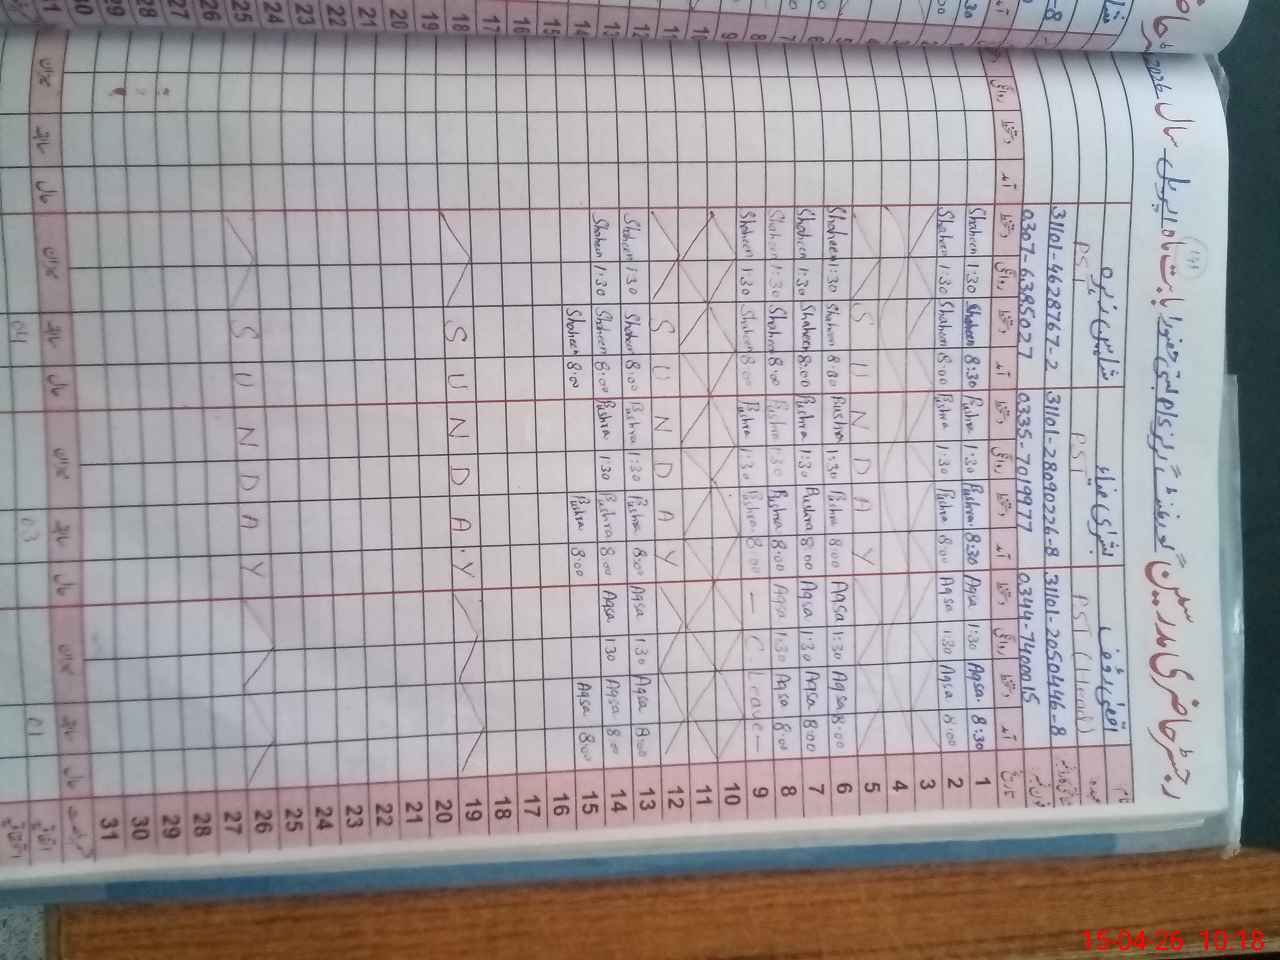 رجسٹر حاضری مدرسین گورنمنٹ گرلز پرائمری سکول بابت ماہ اپریل سال 2026
نام
اقصیٰ رؤف
بشریٰ ضیاء
شاہین زہرہ
عہدہ PST (Head) PST PST
شناختی کارڈ نمبر 31101-2050446-8 31101-2809226-8 31101-4628767-2
فون نمبر 0344-7400015 0335-7019977 0307-6385027
تاریخ آمد دستخط روانگی دستخط آمد دستخط روانگی دستخط آمد دستخط روانگی دستخط آمد دستخط روانگی
1 8:30 Aqsa 1:30 Aqsa 8:30 Bushra 1:30 Bushra 8:30 Shaheen 1:30 Shaheen
2 8:00 Aqsa 1:30 Aqsa 8:00 Bushra 1:30 Bushra 8:00 Shaheen 1:30 Shaheen
3
4
5 SUNDAY
6 8:00 Aqsa 1:30 Aqsa 8:00 Bushra 1:30 Bushra 8:00 Shaheen 1:30 Shaheen
7 8:00 Aqsa 1:30 Aqsa 8:00 Bushra 1:30 Bushra 8:00 Shaheen 1:30 Shaheen
8 8:00 Aqsa 1:30 Aqsa 8:00 Bushra 1:30 Bushra 8:00 Shaheen 1:30 Shaheen
9 — C.Leave — 8:00 Bushra 1:30 Bushra 8:00 Shaheen 1:30 Shaheen
10
11
12 SUNDAY
13 8:00 Aqsa 1:30 Aqsa 8:00 Bushra 1:30 Bushra 8:00 Shaheen 1:30 Shaheen
14 8:00 Aqsa 1:30 Aqsa 8:00 Bushra 1:30 Bushra 8:00 Shaheen 1:30 Shaheen
15 8:00 Aqsa 8:00 Bushra 8:00 Shaheen
16
17
18
19 SUNDAY
20
21
22
23
24
25
26 SUNDAY
27
28
29
30
31
حال سابقہ میزان حال سابقہ میزان حال سابقہ میزان حال سابقہ میزان
اتفاقیہ 01 03 04
15-04-26 10:18